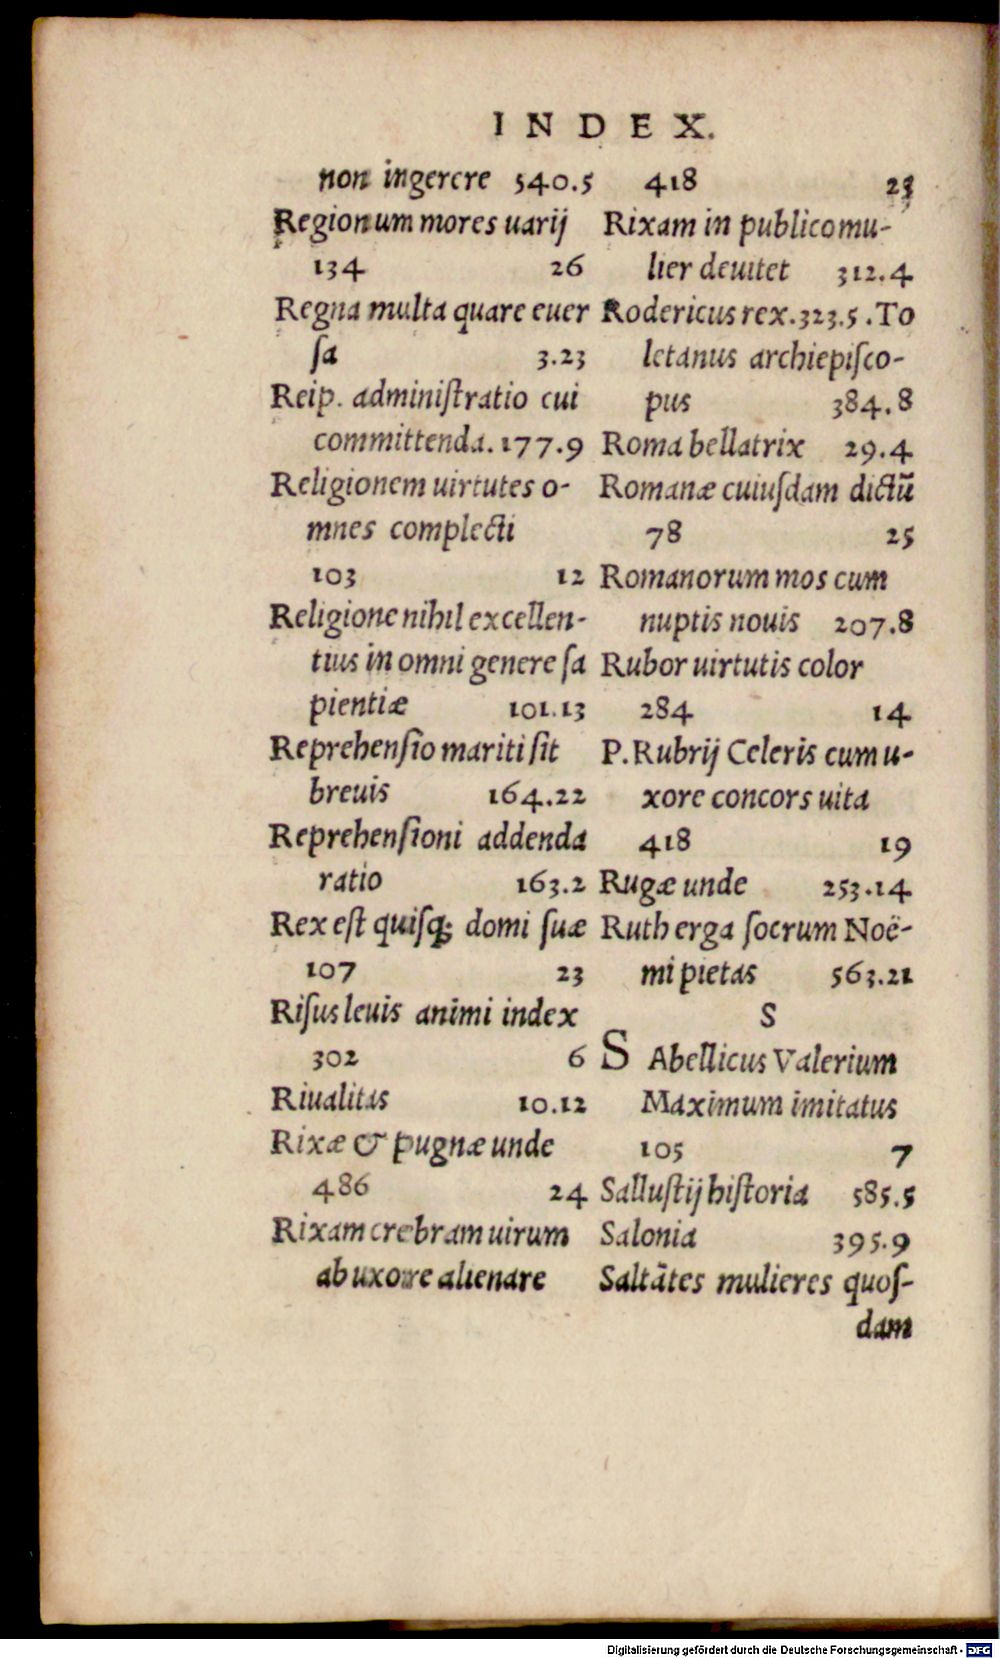 INDEX.
non ingerere 540.5
Regionum mores uarij
134 26
Regna multa quare euer
ſa 3.23
Reip. adminiſtratio cui
committenda. 177.9
Religionem uirtutes o-
mnes complecti
103 12
Religione nihil excellen-
tius in omni genere ſa
pientiæ 101.13
Reprehenſio mariti ſit
breuis 164.22
Reprehenſioni addenda
ratio 163.2
Rex eſt quiſq; domi ſuæ
107 23
Riſus leuis animi index
302 6
Riualitas 10.12
Rixæ & pugnæ unde
486 24
Rixam crebram uirum
ab uxore alienare
418 23
Rixam in publico mu-
lier deuitet 312.4
Rodericus rex. 323.5. To
letanus archiepiſco-
pus 384.8
Roma bellatrix 29.4
Romanæ cuiuſdam dictū
78 25
Romanorum mos cum
nuptis nouis 207.8
Rubor uirtutis color
284 14
P. Rubrij Celeris cum u-
xore concors uita
418 19
Rugæ unde 253.14
Ruth erga ſocrum Noë-
mi pietas 563.21
S
SAbellicus Valerium
Maximum imitatus
105 7
Salluſtij hiſtoria 585.5
Salonia 395.9
Saltātes mulieres quoſ-
dam
Digitalisierung gefördert durch die Deutsche Forschungsgemeinschaft - DFG